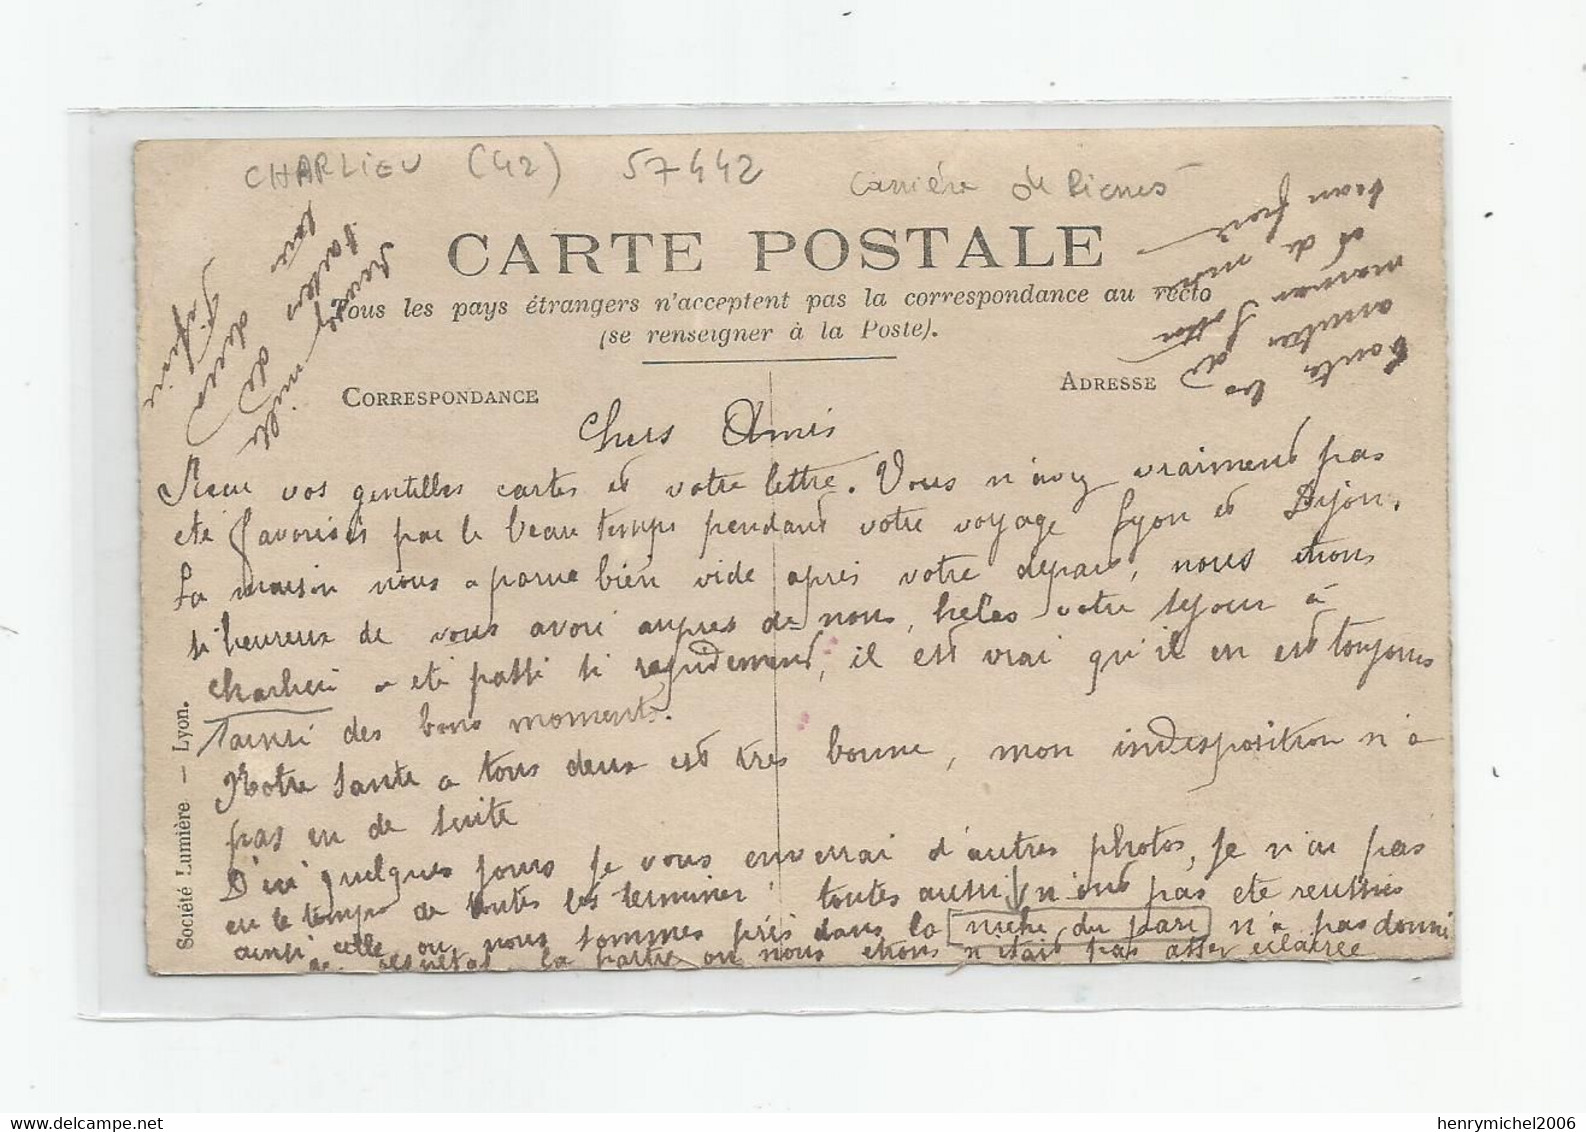 CHARLIEU (42) 57442 Carriére de Pierres
CARTE POSTALE
Tous les pays étrangers n'acceptent pas la correspondance au recto
(se renseigner à la Poste).
CORRESPONDANCE
ADRESSE
Chers Amis
Recu vos gentilles cartes et votre lettre. Vous n'avez vraiment pas
eté favorisés par le beau temps pendant votre voyage Lyon et Dijon.
La maison nous a parue bien vide apres votre depart, nous etions
si heureux de vous avoir aupres de nous, helas votre sejour à
Charlieu a eté passé si rapidement, il est vrai qu'il en est toujours
ainsi des bons moments.
Notre santé a tous deux est très bonne, mon indisposition n'a
pas eu de suite
D'ici quelques jours je vous enverrai d'autres photos, je n'ai pas
eu le temps de toutes les terminer toutes aussi n'ont pas eté reussies
ainsi celle ou nous sommes pris dans la niche du parc n'a pas donné
de resultat la partie ou nous etions n'etait pas assez eclairée
Recevez mille
baisers de
deux
Toute les
amitiés de
maman
et de mon
beau frere
Société Lumière. — Lyon.
henrymichel2006